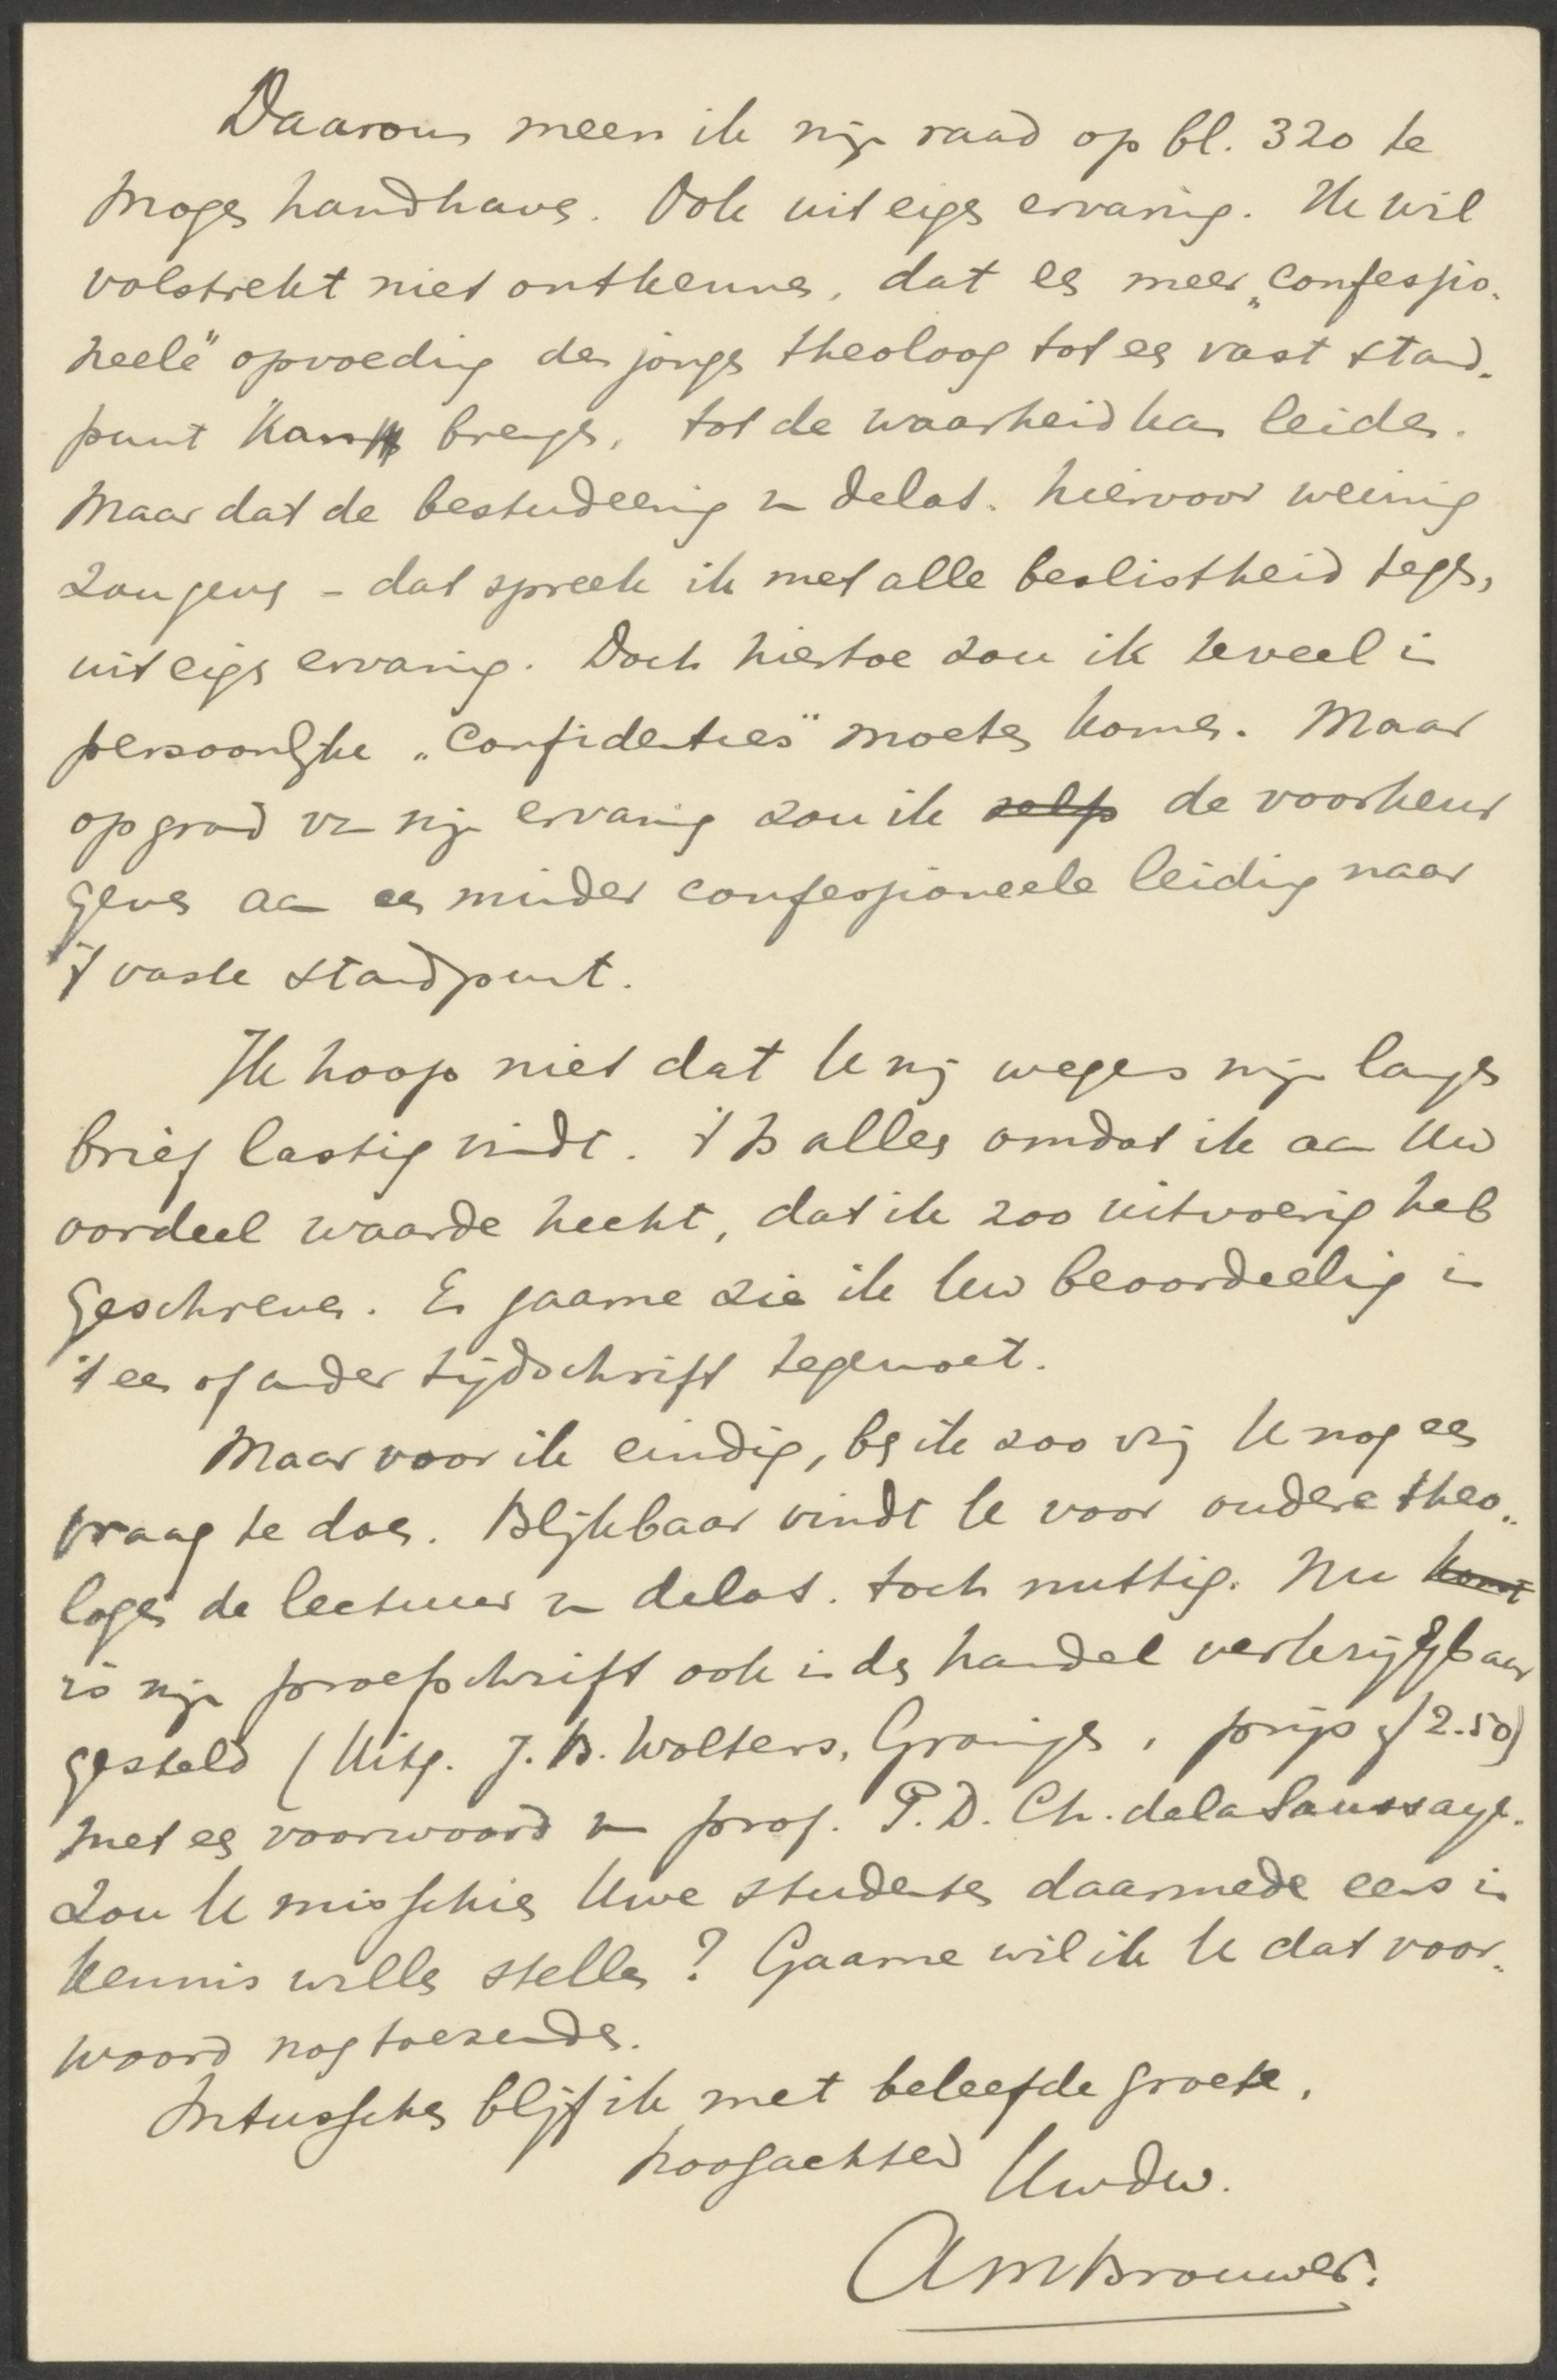 Daarom meen ik mijn raad op bl. 320 te
mogen handhaven. Ook uit eigen ervaring. Ik wil
volstrekt niet ontkennen, dat een meer „confessio-
neele" opvoeding den jongen theoloog tot een vast stand-
punt kan brengen, tot de waarheid kan leiden.
Maar dat de bestudeering v. delaS. hiervoor weinig
zou geven - dat spreek ik met alle beslistheid tegen,
uit eigen ervaring. Doch hiertoe zou ik teveel in
persoonlijke „confidenties" moeten komen. Maar
op grond van mijn ervaring zou ik zelfs de voorkeur
geven aan een minder confessioneele leiding naar
't vaste standpunt.
Ik hoop niet dat U mij wegens mijn langen
brief lastig vindt. 't Is alles omdat ik aan Uw
oordeel waarde hecht, dat ik zoo uitvoerig heb
geschreven. En gaarne zie ik Uw beoordeeling in
't een of ander tijdschrift tegemoet.
Maar voor ik eindig, ben ik zoo vrij U nog een
vraag te doen. Blijkbaar vindt U voor oudere theo-
logen de lectuur v. delaS. toch nuttig. Nu komt
is mijn proefschrift ook in den handel verkrijgbaar
gesteld (Uitg. J.B. Wolters, Groningen, prijs f 2.50)
met een voorwoord van prof. P.D. Ch. de la Saussaye.
Zou U misschien Uwe studenten daarmede eens in
kennis willen stellen? Gaarne wil ik U dat voor-
woord nog toezenden.
Intusschen blijf ik met beleefde groeten,
hoogachtend Uwdw.
AMBrouwer.